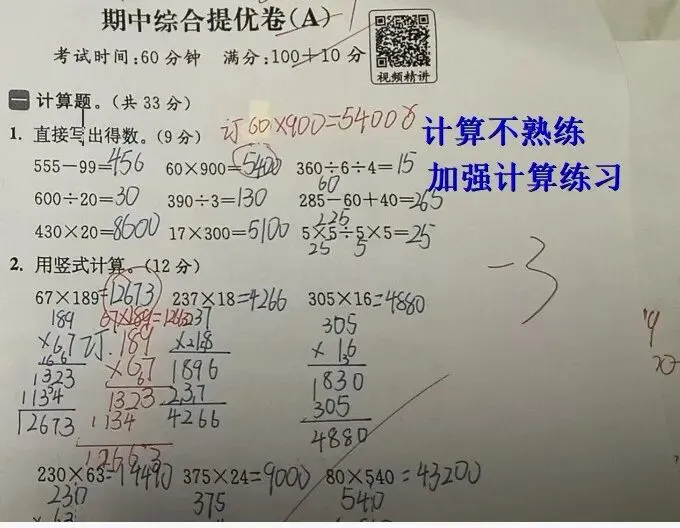 期中综合提优卷(A)
考试时间:60分钟 满分:100+10分
视频精讲
一 计算题。(共33分)
1. 直接写出得数。(9分) 订 60×900=54000
计算不熟练
加强计算练习
555-99=456 60×900=5400 360÷6÷4=15
60
600÷20=30 390÷3=130 285-60+40=265
225
430×20=8600 17×300=5100 5×5÷5×5=25
25 5
-3
2. 用竖式计算。(12分)
67×189=12673 237×18=4266 305×16=4880
67×189=12663
189 订 189 237 305
×67 ×67 ×18 ×16
1323 1323 1896 1830
1134 1134 237 305
12673 12663 4266 4880
230×63=14490 375×24=9000 80×540=43200
230 375 540
×63